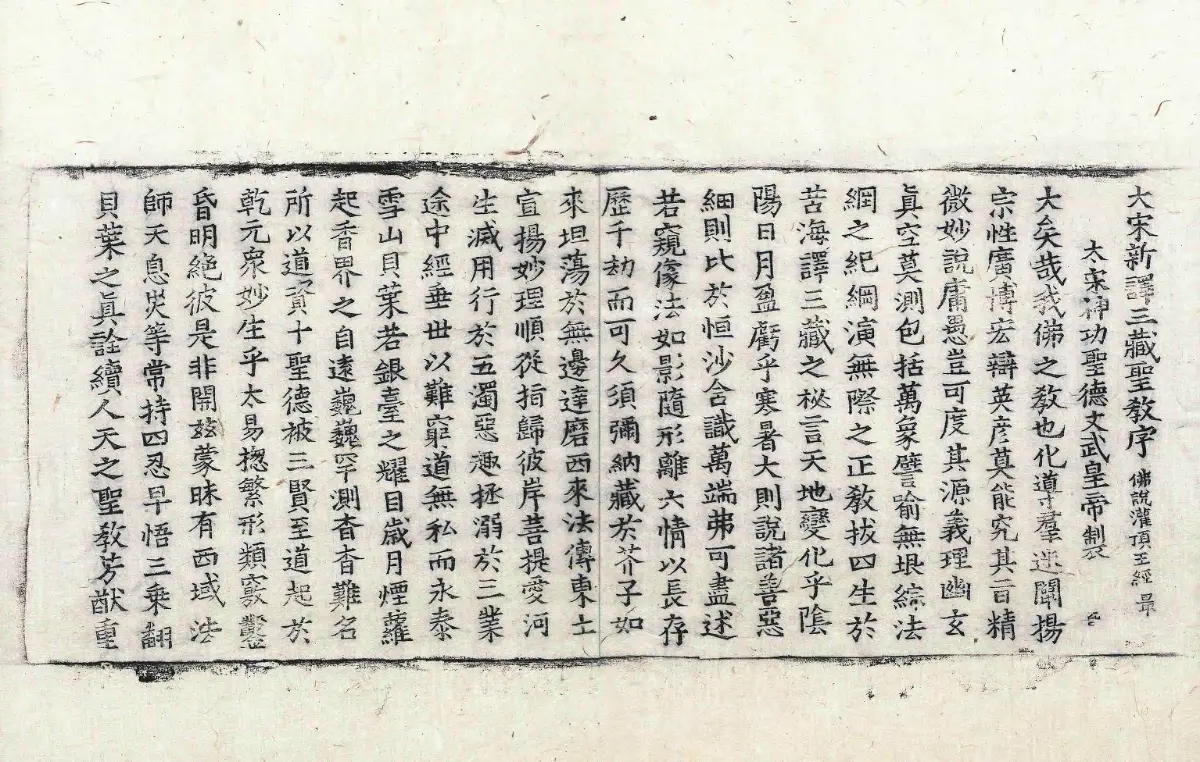 大宋新譯三藏聖教序 佛說灌頂王經 最
太宗神功聖德文武皇帝製
大矣哉我佛之教也化導羣迷闡揚
宗性廣博宏辯英彥莫能究其旨精
微妙說庸愚豈可度其源義理幽玄
眞空莫測包括萬象譬喻無垠綜法
網之紀綱演無際之正教拔四生於
苦海譯三藏之秘言天地變化乎陰
陽日月盈虧乎寒暑大則說諸善惡
細則比於恒沙含識萬端弗可盡述
若窺像法如影隨形離六情以長存
歷千劫而可久須彌納藏於芥子如
來坦蕩於無邊達磨西來法傳東土
宣揚妙理順從指歸彼岸菩提愛河
生滅用行於五濁惡趣拯溺於三業
途中經垂世以難窮道無私而永泰
雪山貝葉若銀臺之耀目歲月煙蘿
起香界之自遠巍巍罕測杳杳難名
所以道資十聖德被三賢至道起於
乾元衆妙生乎太易揔繁形類竅鑿
昏明絶彼是非開玆蒙昧有西域法
師天息灾等常持四忍早悟三乘翻
貝葉之眞詮續人天之聖教芳猷重